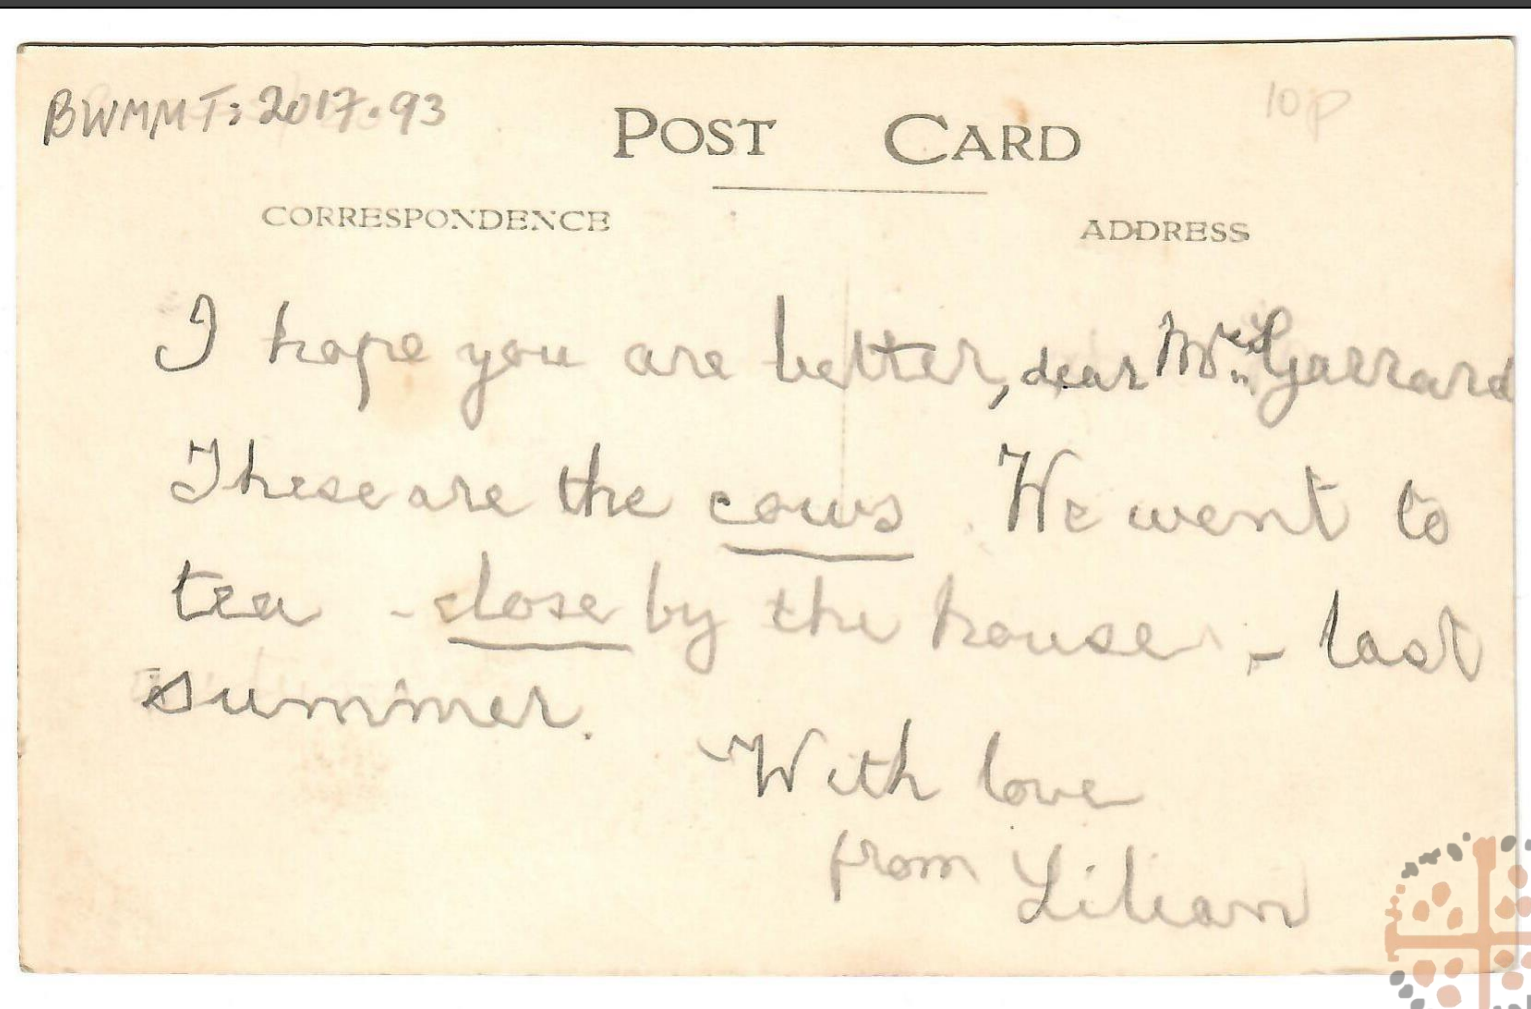 BWMMT: 2017.93
10p
POST CARD
CORRESPONDENCE
ADDRESS
I hope you are better, dear Mrs Garrard
These are the cows We went to
tea - close by the house - last
summer.
With love
from Lilian